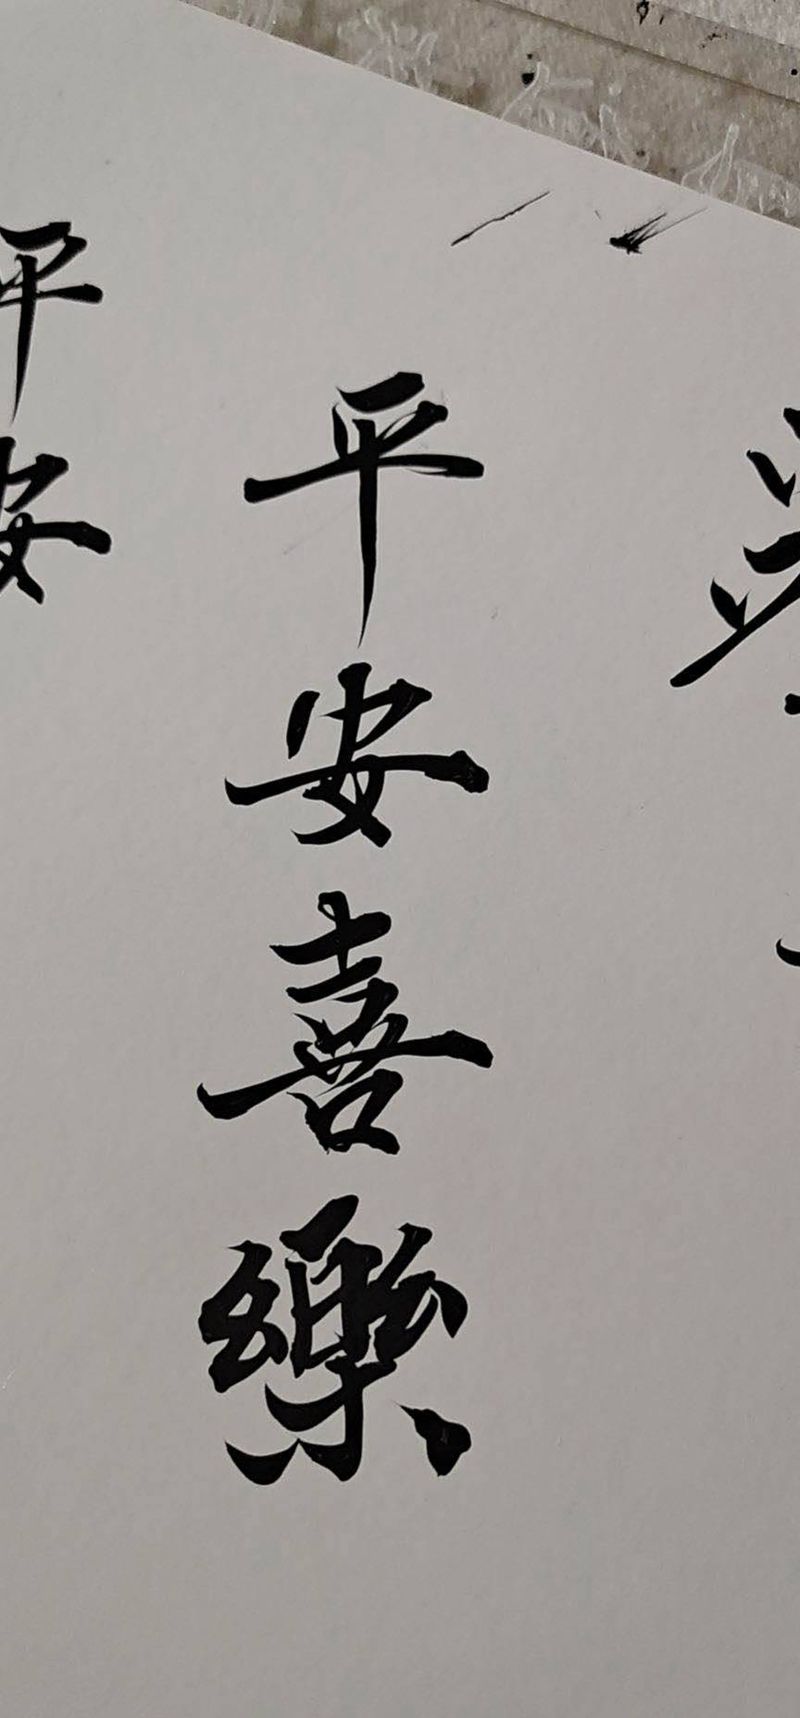 平安喜樂
平安